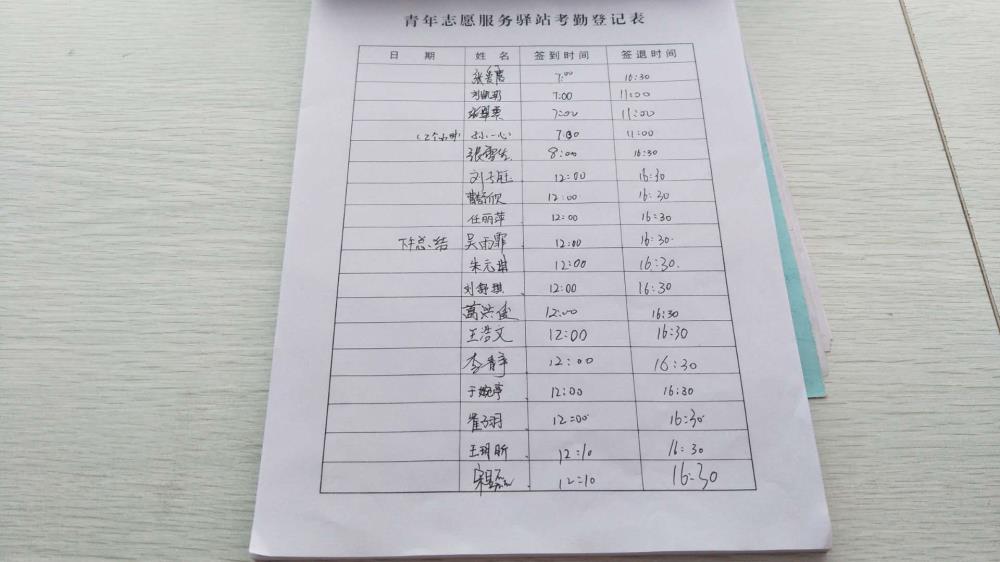 青年志愿服务驿站考勤登记表
日 期 姓 名 签到时间 签退时间
7:00 16:30
7:00 11:00
7:00 11:00
(2个小时) 孙一心 7:30 11:00
张雪 8:00 16:30
刘 12:00 16:30
曹舒欣 12:00 16:30
任丽萍 12:00 16:30
下午总结 吴雨霏 12:00 16:30
朱元 12:00 16:30
刘舒琪 12:00 16:30
葛洪 12:00 16:30
王浩文 12:00 16:30
李静 12:00 16:30
于婉婷 12:00 16:30
崔子羽 12:00 16:30
王玥昕 12:10 16:30
宋 12:10 16:30